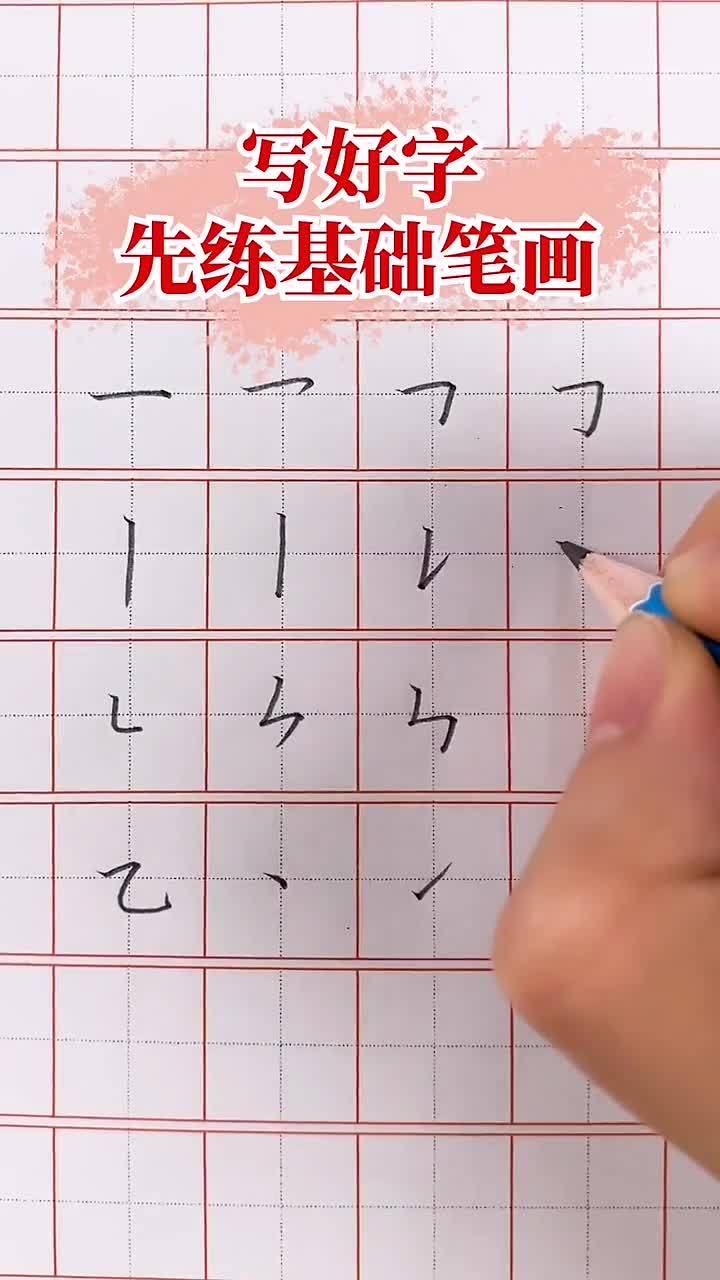 写好字
先练基础笔画
一 ㇇ ㇕ ㇆
丨 丨 ㇙
㇗ ㇉ ㇉
乙 丶 ㇀